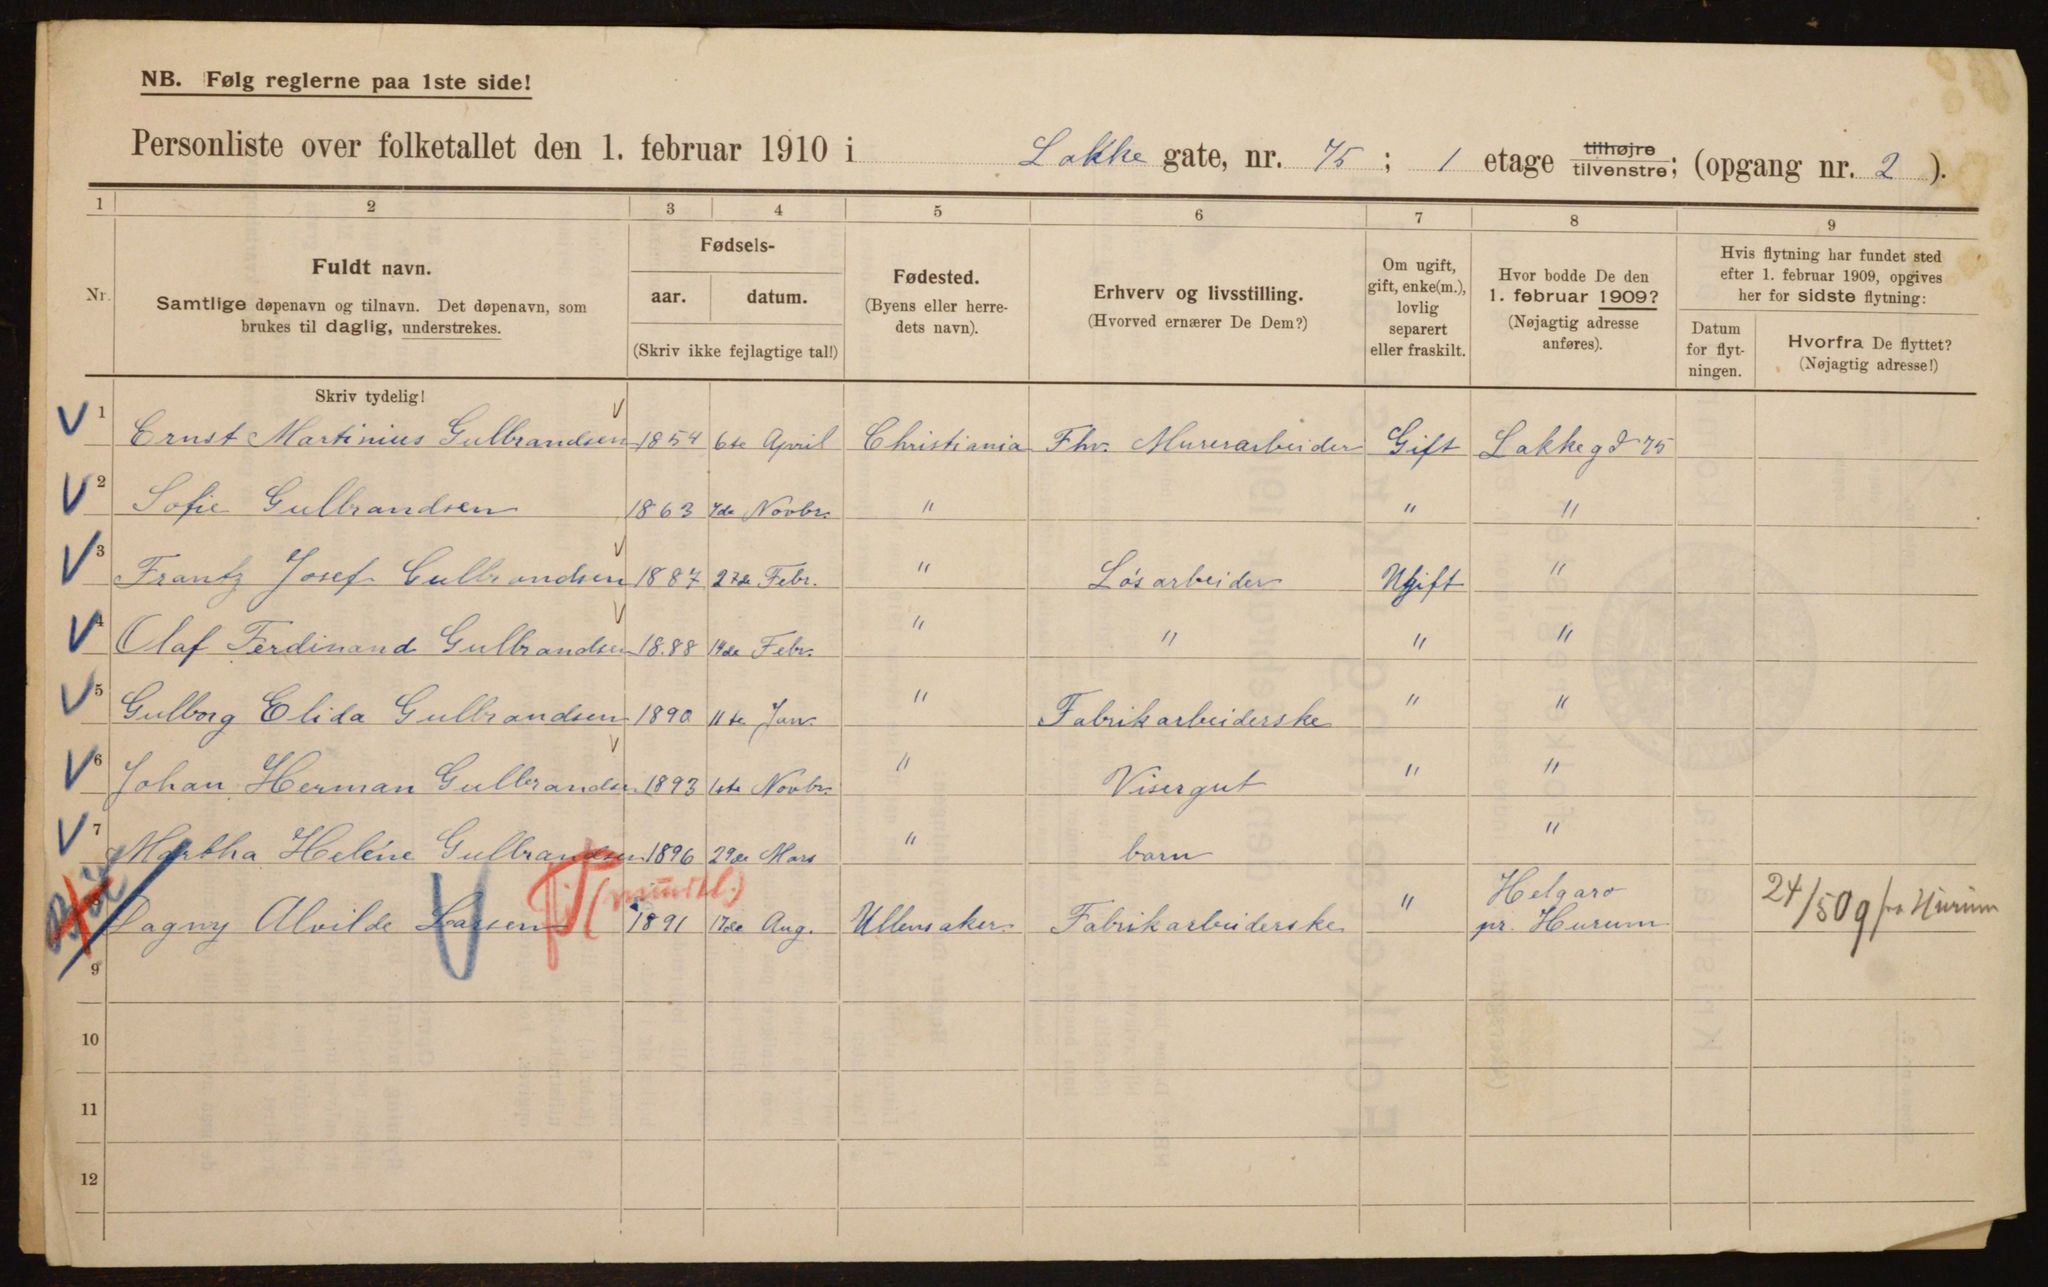 NB. Følg reglerne paa 1ste side!
Personliste over folketallet den 1. februar 1910 i Lakke gate, nr. 75 ; 1 etage tilhøjre tilvenstre; (opgang nr. 2 ).
1 2 3 4 5 6 7 8 9
Nr.
Fuldt navn.
Samtlige døpenavn og tilnavn. Det døpenavn, som
brukes til daglig, understrekes.
Skriv tydelig!
Fødsels-
aar. datum.
(Skriv ikke fejlagtige tal!)
Fødested.
(Byens eller herre-
dets navn).
Erhverv og livsstilling.
(Hvorved ernærer De Dem?)
Om ugift,
gift, enke(m.),
lovlig
separert
eller fraskilt.
Hvor bodde De den
1. februar 1909?
(Nøjagtig adresse
anføres).
Hvis flytning har fundet sted
efter 1. februar 1909, opgives
her for sidste flytning:
Datum
for flyt-
ningen.
Hvorfra De flyttet?
(Nøjagtig adresse!)
1 Ernst Martinius Gulbrandsen 1854 6te April Christiania Fhv. Murerarbeider Gift Lakkegd 75
2 Sofie Gulbrandsen 1863 7de Novbr. " " "
3 Frantz Josef Gulbrandsen 1887 27de Febr. " Løsarbeider Ugift "
4 Olaf Ferdinand Gulbrandsen 1888 14de Febr. " " " "
5 Gulborg Elida Gulbrandsen 1890 11te Jan. " Fabrikarbeiderske " "
6 Johan Herman Gulbrandsen 1893 1ste Novbr. " Visergut " "
7 Martha Heléne Gulbrandsen 1896 29de Mars " barn "
8 Dagny Alvilde Larsen (mundtl.) 1891 17de Aug. Ullensaker Fabrikarbeiderske " Helgaro
pr. Hurum 24/5 09 fra Hurum
9
10
11
12